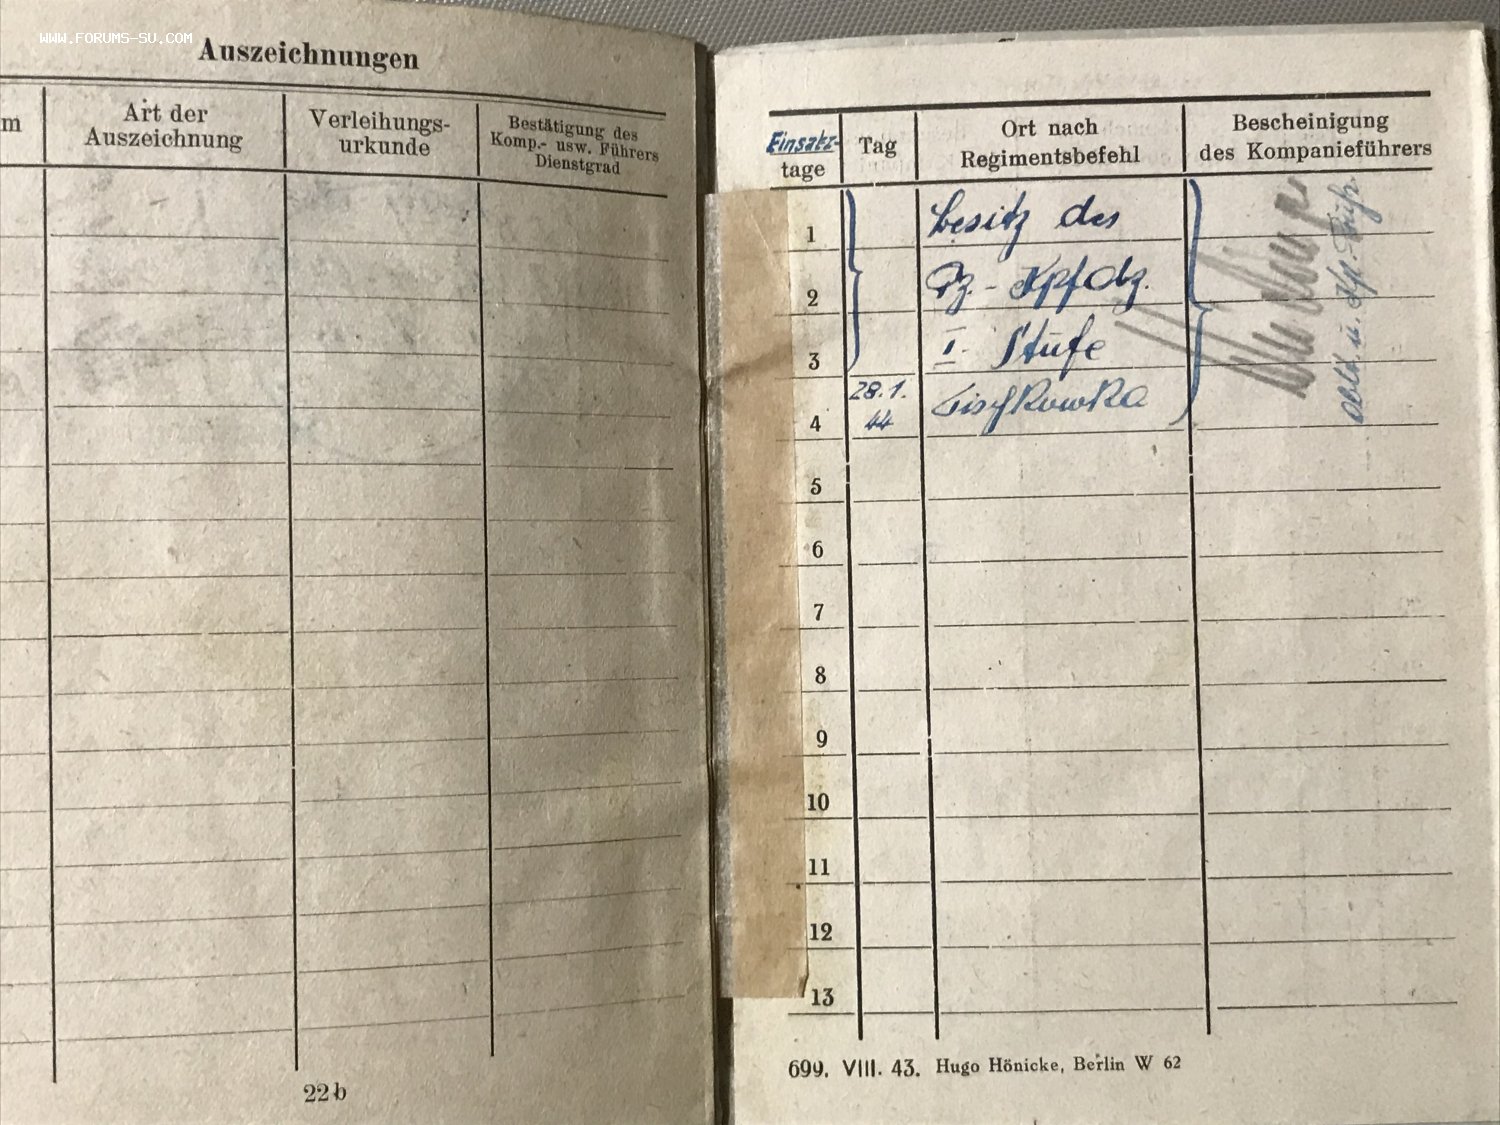 WWW.FORUMS-SU.COM
Auszeichnungen
m
Art der
Auszeichnung
Verleihungs-
urkunde
Bestätigung des
Komp.- usw. Führers
Dienstgrad
22b
Einsatz-
tage
Tag
Ort nach
Regimentsbefehl
Bescheinigung
des Kompanieführers
1
Besitz des
2
Pz-Kpfabz.
3
I. Stufe
4
28.1.
44
Tischkowka
Oblt. u. Kp.-Führ.
5
6
7
8
9
10
11
12
13
699. VIII. 43. Hugo Hönicke, Berlin W 62